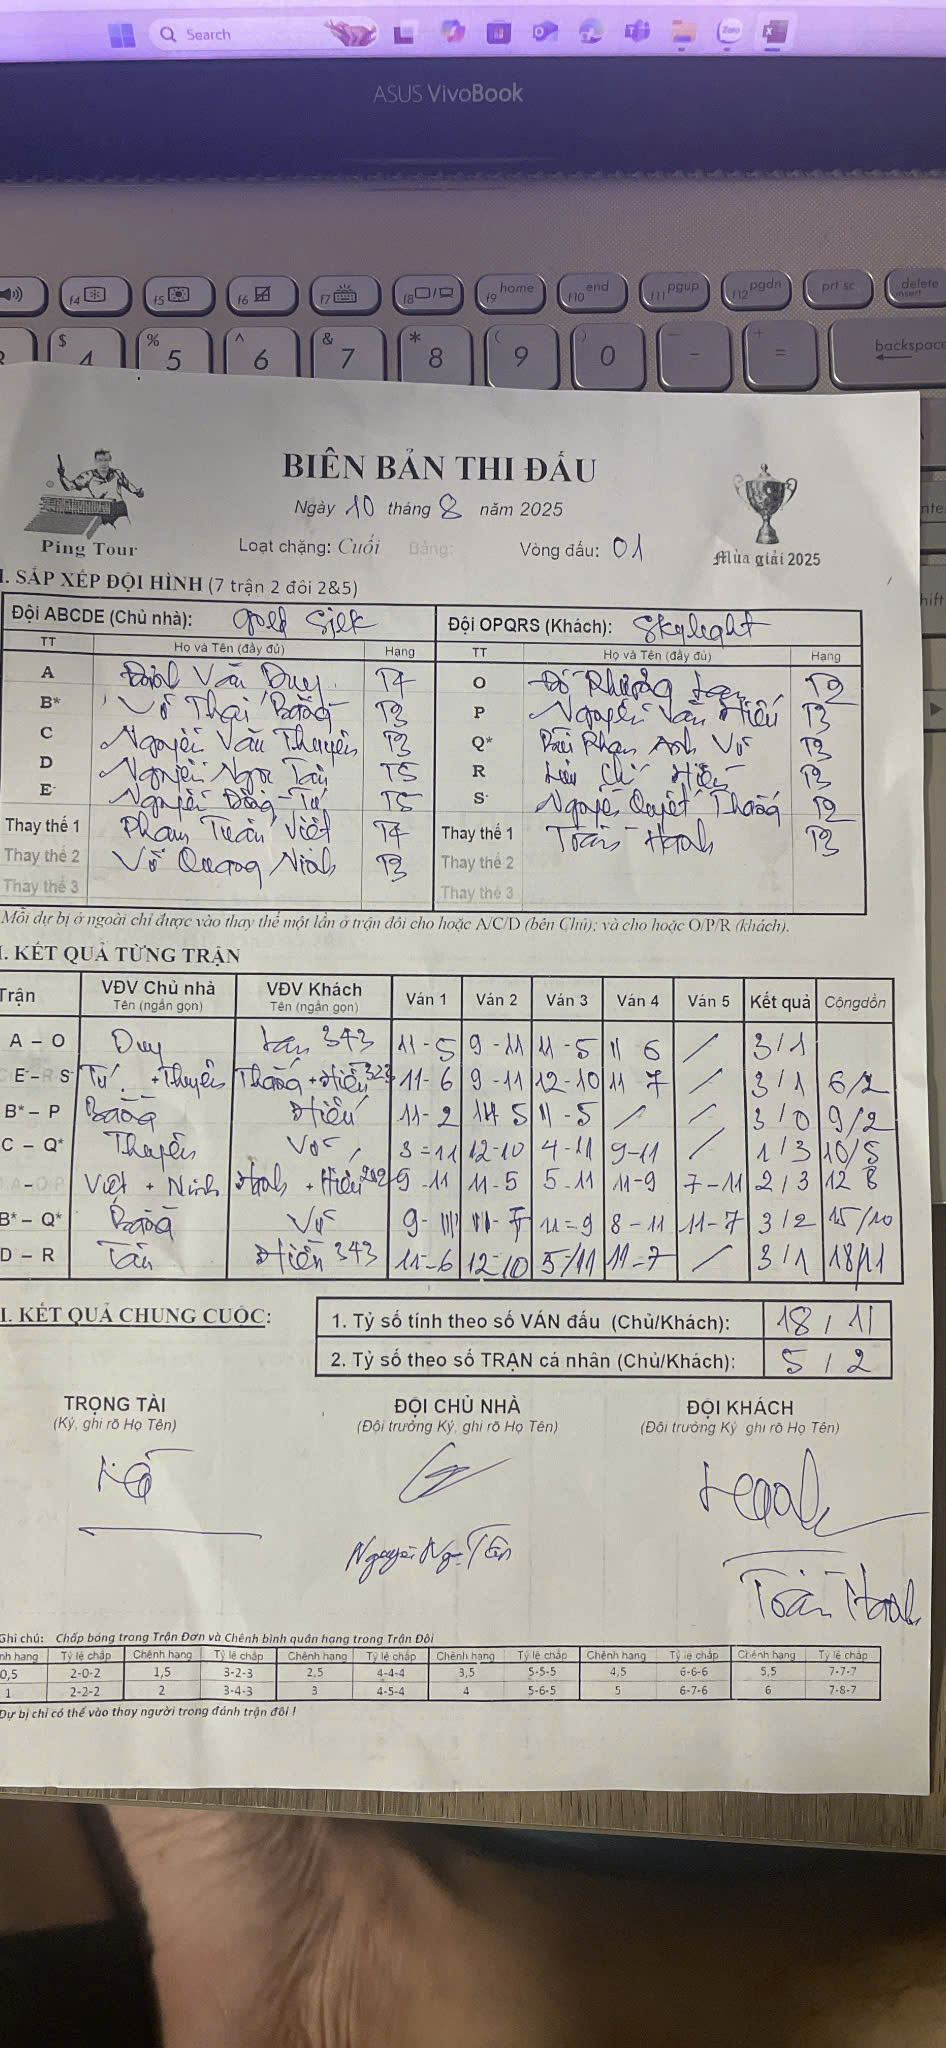 Search
ASUS VivoBook
f4 f5 f6 f7 f8 home f9 end f10 pgup f11 pgdn f12 prt sc delete insert
$ 4 % 5 ^ 6 & 7 * 8 ( 9 ) 0 - + = backspace
BIÊN BẢN THI ĐẤU
Ngày 10 tháng 8 năm 2025
Ping Tour Loạt chặng: Cuối Bảng: Vòng đấu: 01 Mùa giải 2025
I. SẮP XẾP ĐỘI HÌNH (7 trận 2 đôi 2&5)
Đội ABCDE (Chủ nhà): Gold Silk Đội OPQRS (Khách): Skylight
TT Họ và Tên (đầy đủ) Hạng TT Họ và Tên (đầy đủ) Hạng
A Đinh Văn Duy T4 O Đỗ Phương Lan T2
B* Võ Thái Bằng T3 P Nguyễn Văn Hiếu T3
C Nguyễn Văn Thuyên T3 Q* Bùi Phan Anh Vũ T3
D Nguyễn Ngọc Tân T5 R Chí Hiền T3
E Nguyễn Tú T5 S Nguyễn Quyết Thắng T2
Thay thế 1 Phạm Tuấn Việt T4 Thay thế 1 Toàn Hạnh T3
Thay thế 2 Võ Quang Ninh T3 Thay thế 2
Thay thế 3 Thay thế 3
Mỗi dự bị ở ngoài chỉ được vào thay thế một lần ở trận đôi cho hoặc A/C/D (bên Chủ); và cho hoặc O/P/R (khách).
I. KẾT QUẢ TỪNG TRẬN
Trận VĐV Chủ nhà Tên (ngắn gọn) VĐV Khách Tên (ngắn gọn) Ván 1 Ván 2 Ván 3 Ván 4 Ván 5 Kết quả Cộng dồn
A – O Duy Lan 343 11-5 9-11 11-5 11 6 / 3/1
E – R S Tú + Thuyên Thắng + Hiền 323 11-6 9-11 12-10 11 7 / 3/1 6/2
B* – P Bằng Hiếu 11-2 5 11-5 / / 3/0 9/2
C – Q* Thuyên Vũ 3=11 12-10 4-11 9-11 / 1/3 10/5
A – O P Việt + Ninh Hạnh + Hiếu 202 9-11 11-5 5-11 11-9 7-11 2/3 12 8
B* – Q* Bằng Vũ 9-11 11-7 11=9 8-11 11-7 3/2 15/10
D – R Tân Hiền 343 11-6 12-10 5/11 11-7 / 3/1 18/11
I. KẾT QUẢ CHUNG CUỘC: 1. Tỷ số tính theo số VÁN đấu (Chủ/Khách): 18 / 11
2. Tỷ số theo số TRẬN cá nhân (Chủ/Khách): 5 / 2
TRỌNG TÀI ĐỘI CHỦ NHÀ ĐỘI KHÁCH
(Ký, ghi rõ Họ Tên) (Đội trưởng Ký, ghi rõ Họ Tên) (Đội trưởng Ký ghi rõ Họ Tên)
Hạnh
Nguyễn Ngọc Tân
Toàn Hạnh
Ghi chú: Chấp bóng trong Trận Đơn và Chênh bình quân hạng trong Trận Đôi
nh hạng Tỷ lệ chấp Chênh hạng Tỷ lệ chấp Chênh hạng Tỷ lệ chấp Chênh hạng Tỷ lệ chấp Chênh hạng Tỷ lệ chấp Chênh hạng Tỷ lệ chấp
0,5 2-0-2 1,5 3-2-3 2,5 4-4-4 3,5 5-5-5 4,5 6-6-6 5,5 7-7-7
1 2-2-2 2 3-4-3 3 4-5-4 4 5-6-5 5 6-7-6 6 7-8-7
Dự bị chỉ có thể vào thay người trong đánh trận đôi !